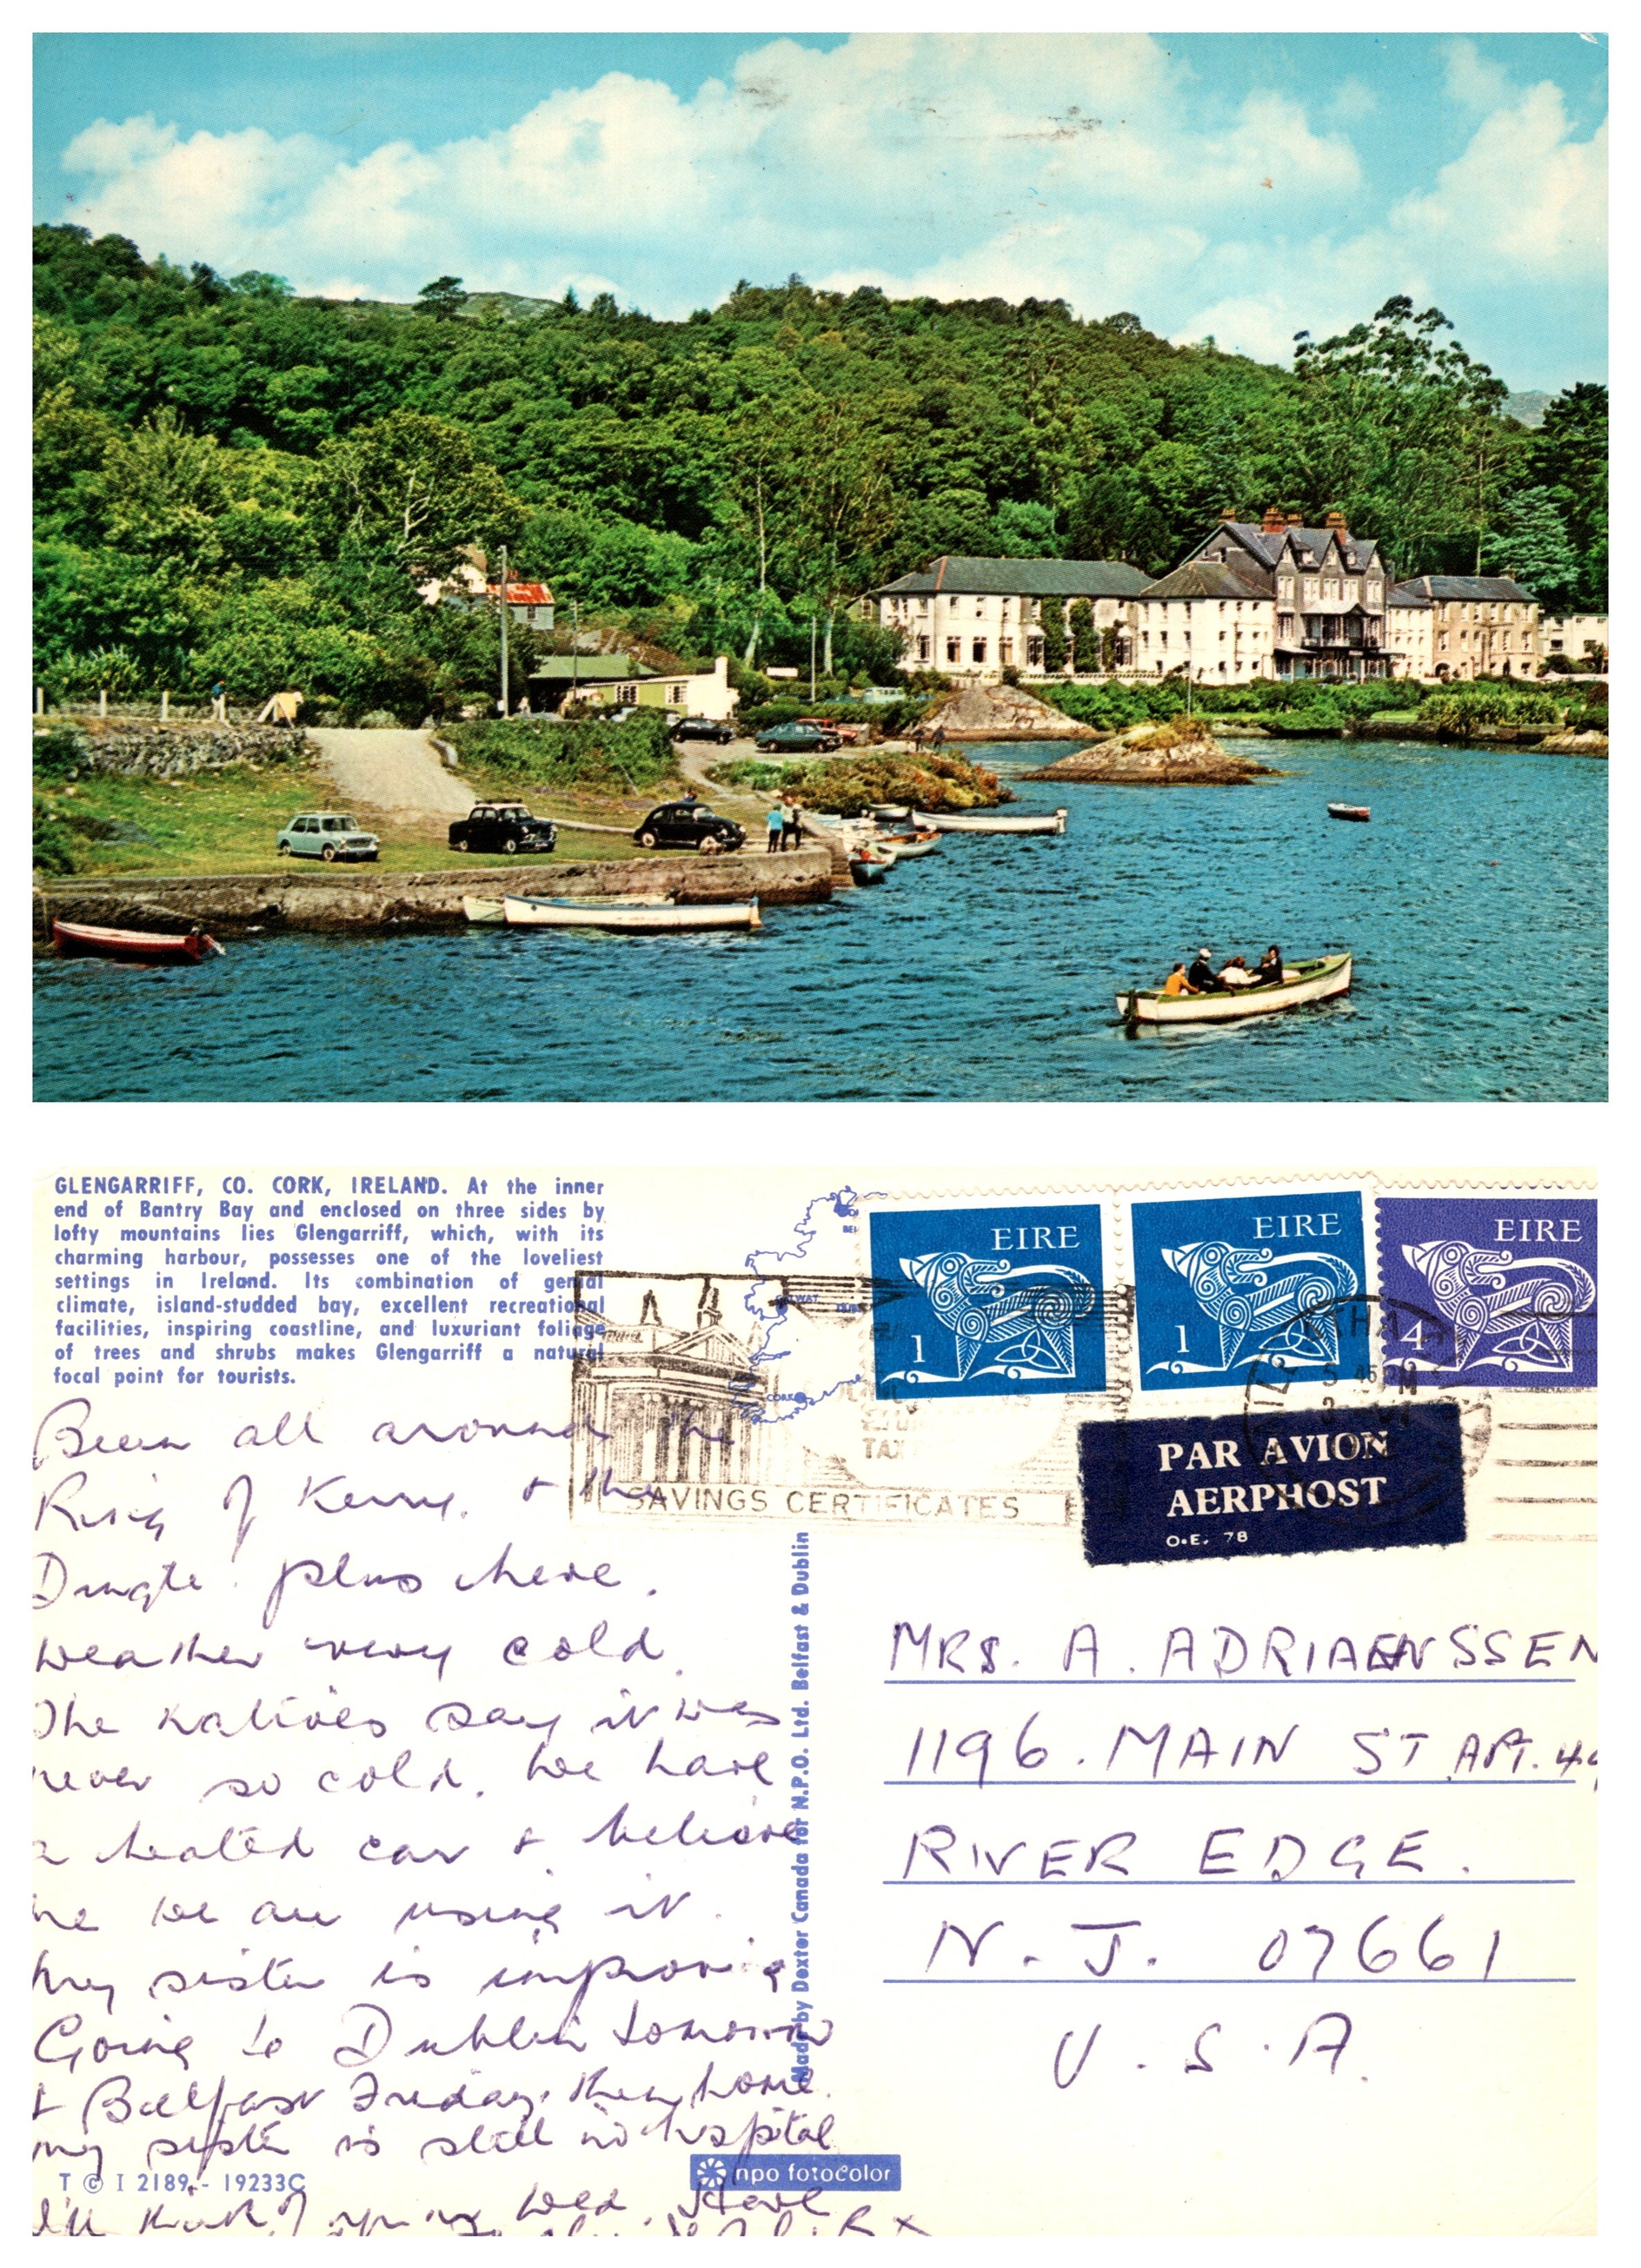 GLENGARRIFF, CO. CORK, IRELAND. At the inner
end of Bantry Bay and enclosed on three sides by
lofty mountains lies Glengarriff, which, with its
charming harbour, possesses one of the loveliest
settings in Ireland. Its combination of genial
climate, island-studded bay, excellent recreational
facilities, inspiring coastline, and luxuriant foliage
of trees and shrubs makes Glengarriff a natural
focal point for tourists.
EIRE
1
EIRE
1
EIRE
4
CORK
SAVINGS CERTIFICATES
PAR AVION
AERPHOST
O.E. 78
Been all around the
Ring of Kerry. + the
Dingle. plus here.
Weather very cold.
The natives say it was
never so cold. We have
a heated car + believe
me we are using it.
My sister is improving
Going to Dublin tomorrow
+ Belfast Friday. then home.
my sister is still in hospital
I'll think of you Wed.
Made by Dexter Canada for N.P.O. Ltd. Belfast & Dublin
MRS. A. ADRIAENSSEN
1196. MAIN ST APT.
RIVER EDGE.
N.J. 07661
U.S.A.
T © I 2189 - 19233C
npo fotocolor